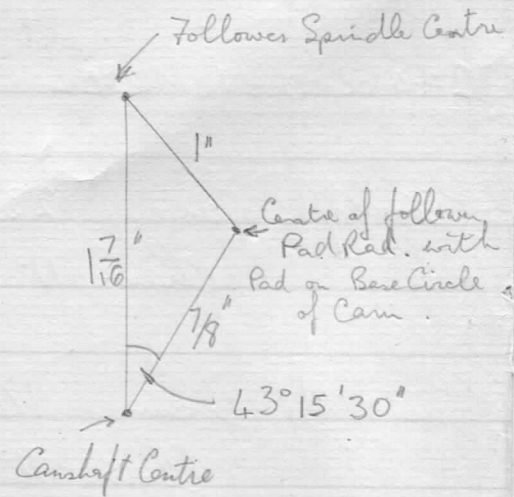 Follower Spindle Centre
1"
1 7/16"
Centre of follower
Pad Rad. with
Pad on Base Circle
of Cam.
7/8"
43° 15' 30"
Camshaft Centre